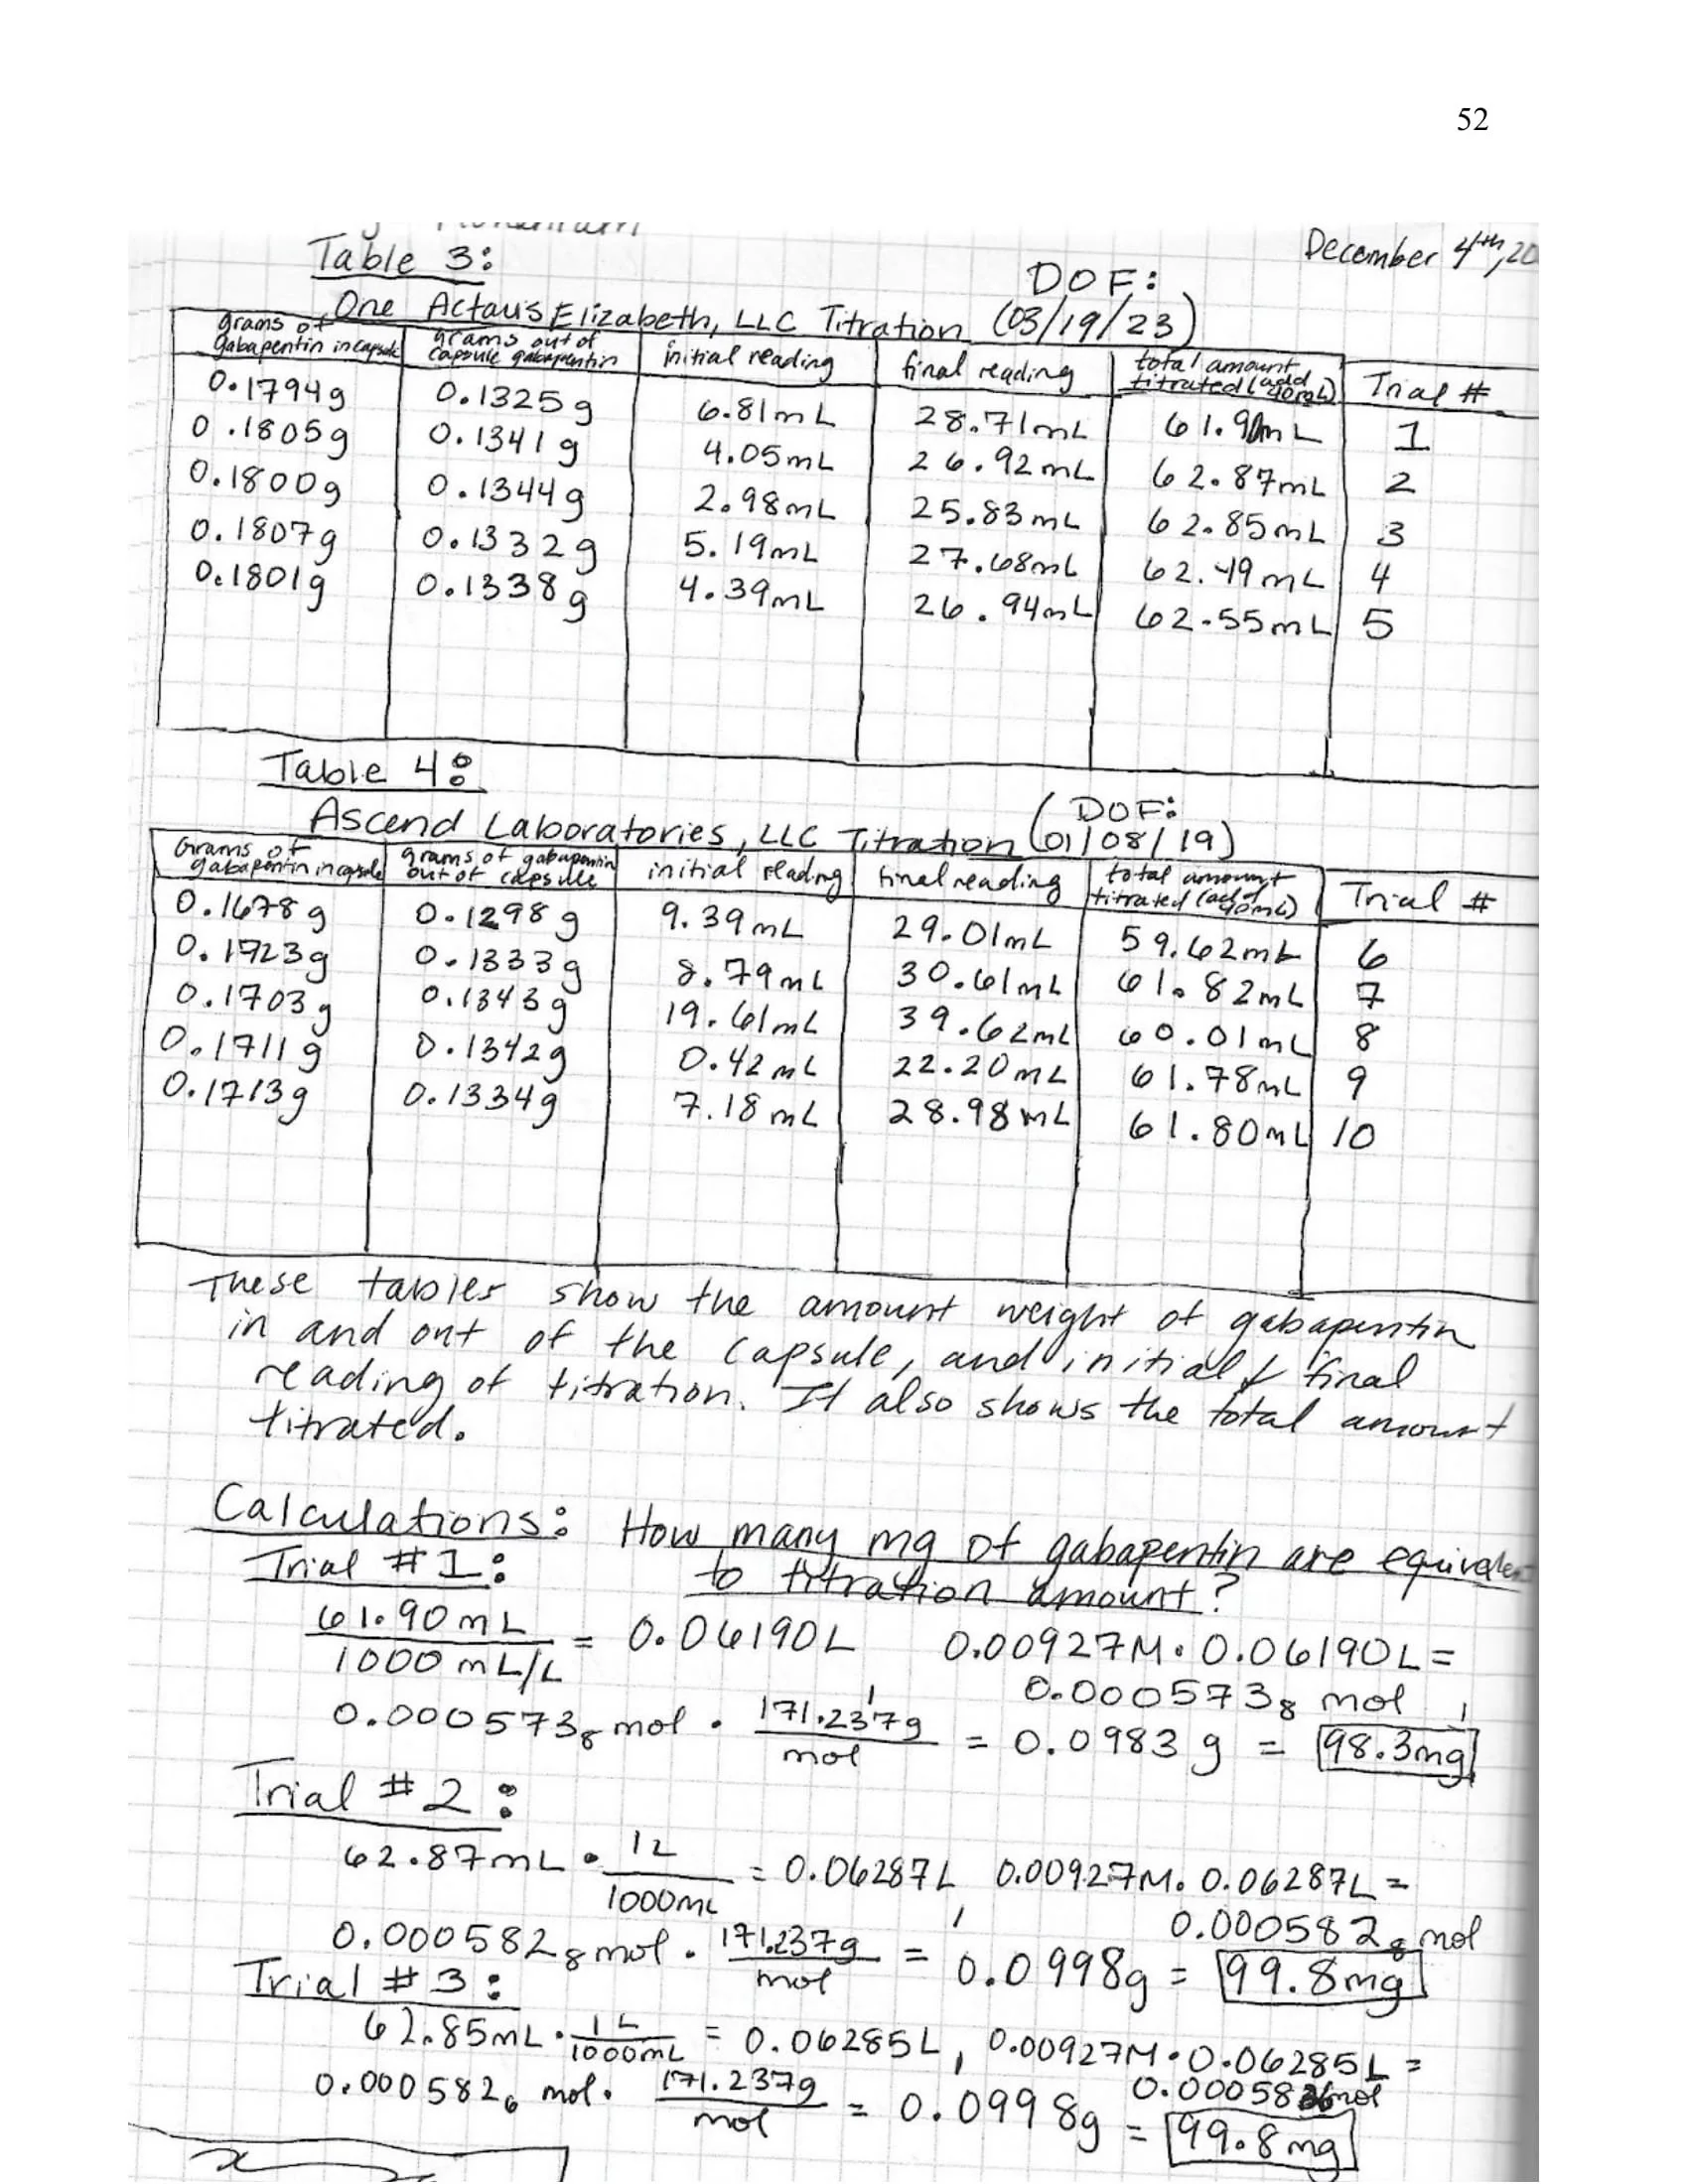 52
December 4th, 20
Table 3:
DOF:
One Actavis Elizabeth, LLC Titration (03/19/23)
grams of gabapentin in capsule | grams out of capsule gabapentin | initial reading | final reading | total amount titrated (add 40mL) | Trial #
0.1794g 0.1325g 6.81mL 28.71mL 61.90mL 1
0.1805g 0.1341g 4.05mL 26.92mL 62.87mL 2
0.1800g 0.1344g 2.98mL 25.83mL 62.85mL 3
0.1807g 0.1332g 5.19mL 27.68mL 62.49mL 4
0.1801g 0.1338g 4.39mL 26.94mL 62.55mL 5
Table 4:
DOF:
Ascend Laboratories, LLC Titration (01/08/19)
Grams of gabapentin in capsule | grams of gabapentin out of capsule | initial reading | final reading | total amount titrated (add 40mL) | Trial #
0.1678g 0.1298g 9.39mL 29.01mL 59.62mL 6
0.1723g 0.1333g 8.79mL 30.61mL 61.82mL 7
0.1703g 0.1343g 19.61mL 39.62mL 60.01mL 8
0.1711g 0.1342g 0.42mL 22.20mL 61.78mL 9
0.1713g 0.1334g 7.18mL 28.98mL 61.80mL 10
These tables show the amount weight of gabapentin
in and out of the capsule, and initial & final
reading of titration. It also shows the total amount
titrated.
Calculations: How many mg of gabapentin are equivalen
Trial #1: to titration amount?
61.90mL / 1000 mL/L = 0.06190L 0.00927M · 0.06190L =
0.000573₈ mol
0.000573₈ mol · 171.237g / mol = 0.0983g = 98.3mg
Trial #2:
62.87mL · 1L / 1000mL = 0.06287L 0.00927M · 0.06287L =
0.000582₈ mol
0.000582₈ mol · 171.237g / mol = 0.0998g = 99.8mg
Trial #3:
62.85mL · 1L / 1000mL = 0.06285L, 0.00927M · 0.06285L =
0.000582₆ mol · 171.237g / mol = 0.0998g = 99.8mg